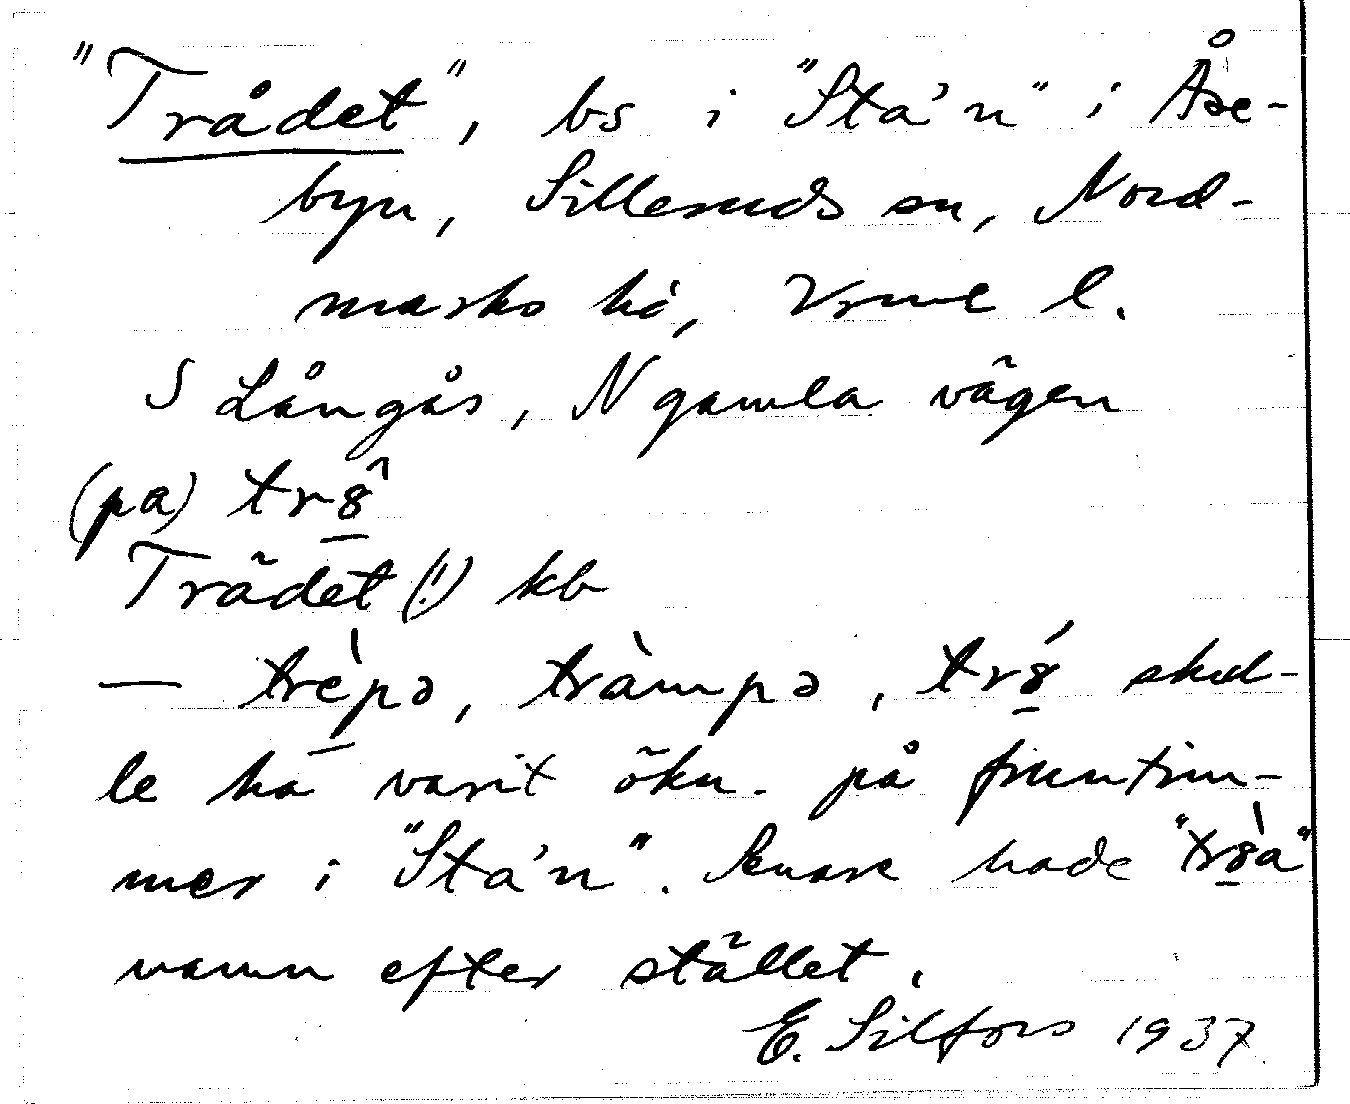 "Trådet", bs i "Sta'n" i Åse-
byn, Silleruds sn, Nord-
marks hd, Vrml l.
S Långås, N gamla vägen
(pa) tr8̂
Trädet (!) kb
— trèpə, tràmpə, tr8́ skul-
le ha varit ökn. på fruntim-
mer i "Sta'n". Senare hade "tr8̀a"
namn efter stället.
E. Silfors 1937